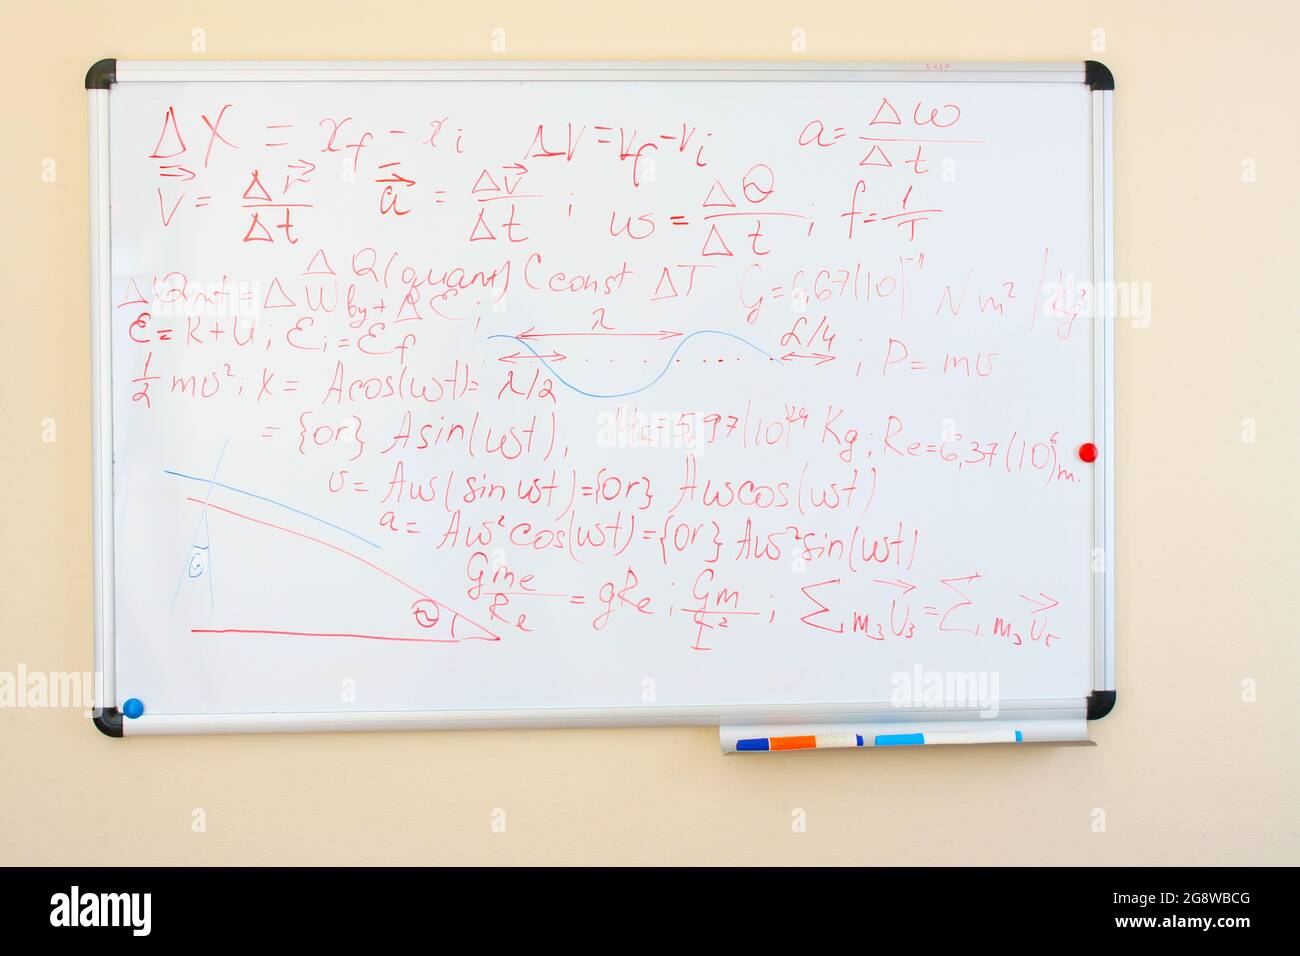 ΔX = x_f - x_i   ΔV = V_f - V_i   a = Δω/Δt
V⃗ = Δr⃗/Δt   a⃗ = Δv⃗/Δt ; ω = ΔΘ/Δt ; f = 1/T
ΔQ(quant) C const ΔT   G = 6,67(10)^-11 N m² / Kg²
ΔQint = ΔW by + Δℰ ;
ℰ = K + U ; ℰ_i = ℰ_f   λ   L/4 ; P = mv
1/2 mv² ; X = A cos(ωt) = λ/2
= {or} A sin(ωt), M_e = 5,97(10)^24 Kg ; Re = 6,37(10)^6 m.
v = Aω(sin ωt) = {or} Aω cos(ωt)
a = Aω² cos(ωt) = {or} Aω² sin(ωt)
G m_e/R_e = gRe ; Gm/r² ; Σ m_3 v⃗_3 = Σ m_3 v⃗
Θ
alamy
Image ID: 2G8WBCG
www.alamy.com